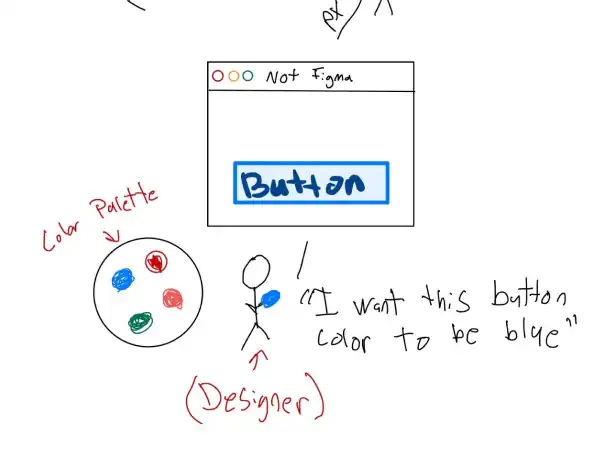 px
Not Figma
Button
Color Palette
"I want this button
color to be blue"
(Designer)